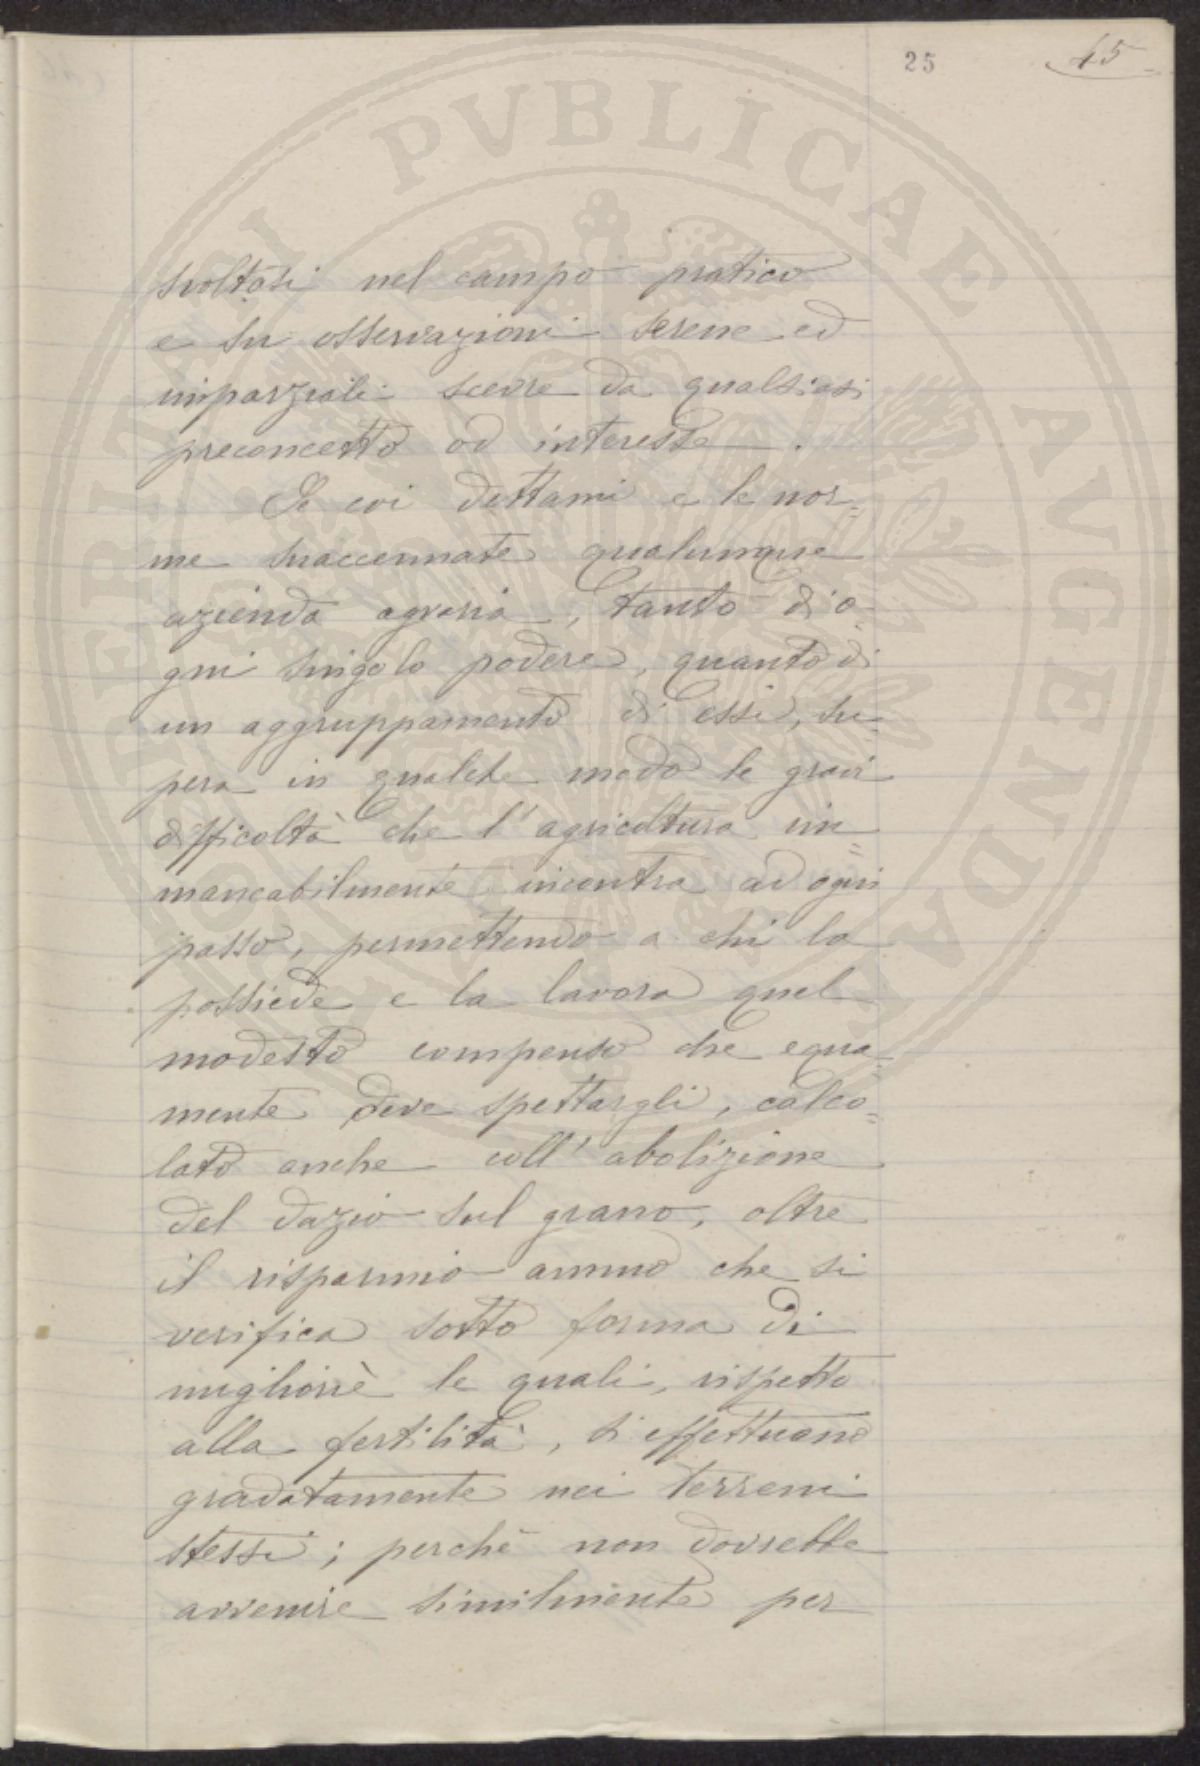 25 45
svoltasi nel campo pratico
e su osservazioni serene ed
imparziali scevre da qualsiasi
preconcetto od interesse.
Se coi dettami e le nor=
me suaccennate qualunque
azienda agraria, tanto di o-
gni singolo podere, quanto di
un aggruppamento di essi, su-
pera in qualche modo le gravi
difficoltà che l'agricoltura im=
mancabilmente incontra ad ogni
passo, permettendo a chi la
possiede e la lavora quel
modesto compenso che equa=
mente deve spettargli, calco=
lato anche coll'abolizione
del dazio sul grano, oltre
il risparmio annuo che si
verifica sotto forma di
migliorìe le quali, rispetto
alla fertilità, si effettuano
gradatamente nei terreni
stessi; perchè non dovrebbe
avvenire similmente per
PROSPERITATI PVBLICAE AVGENDAE